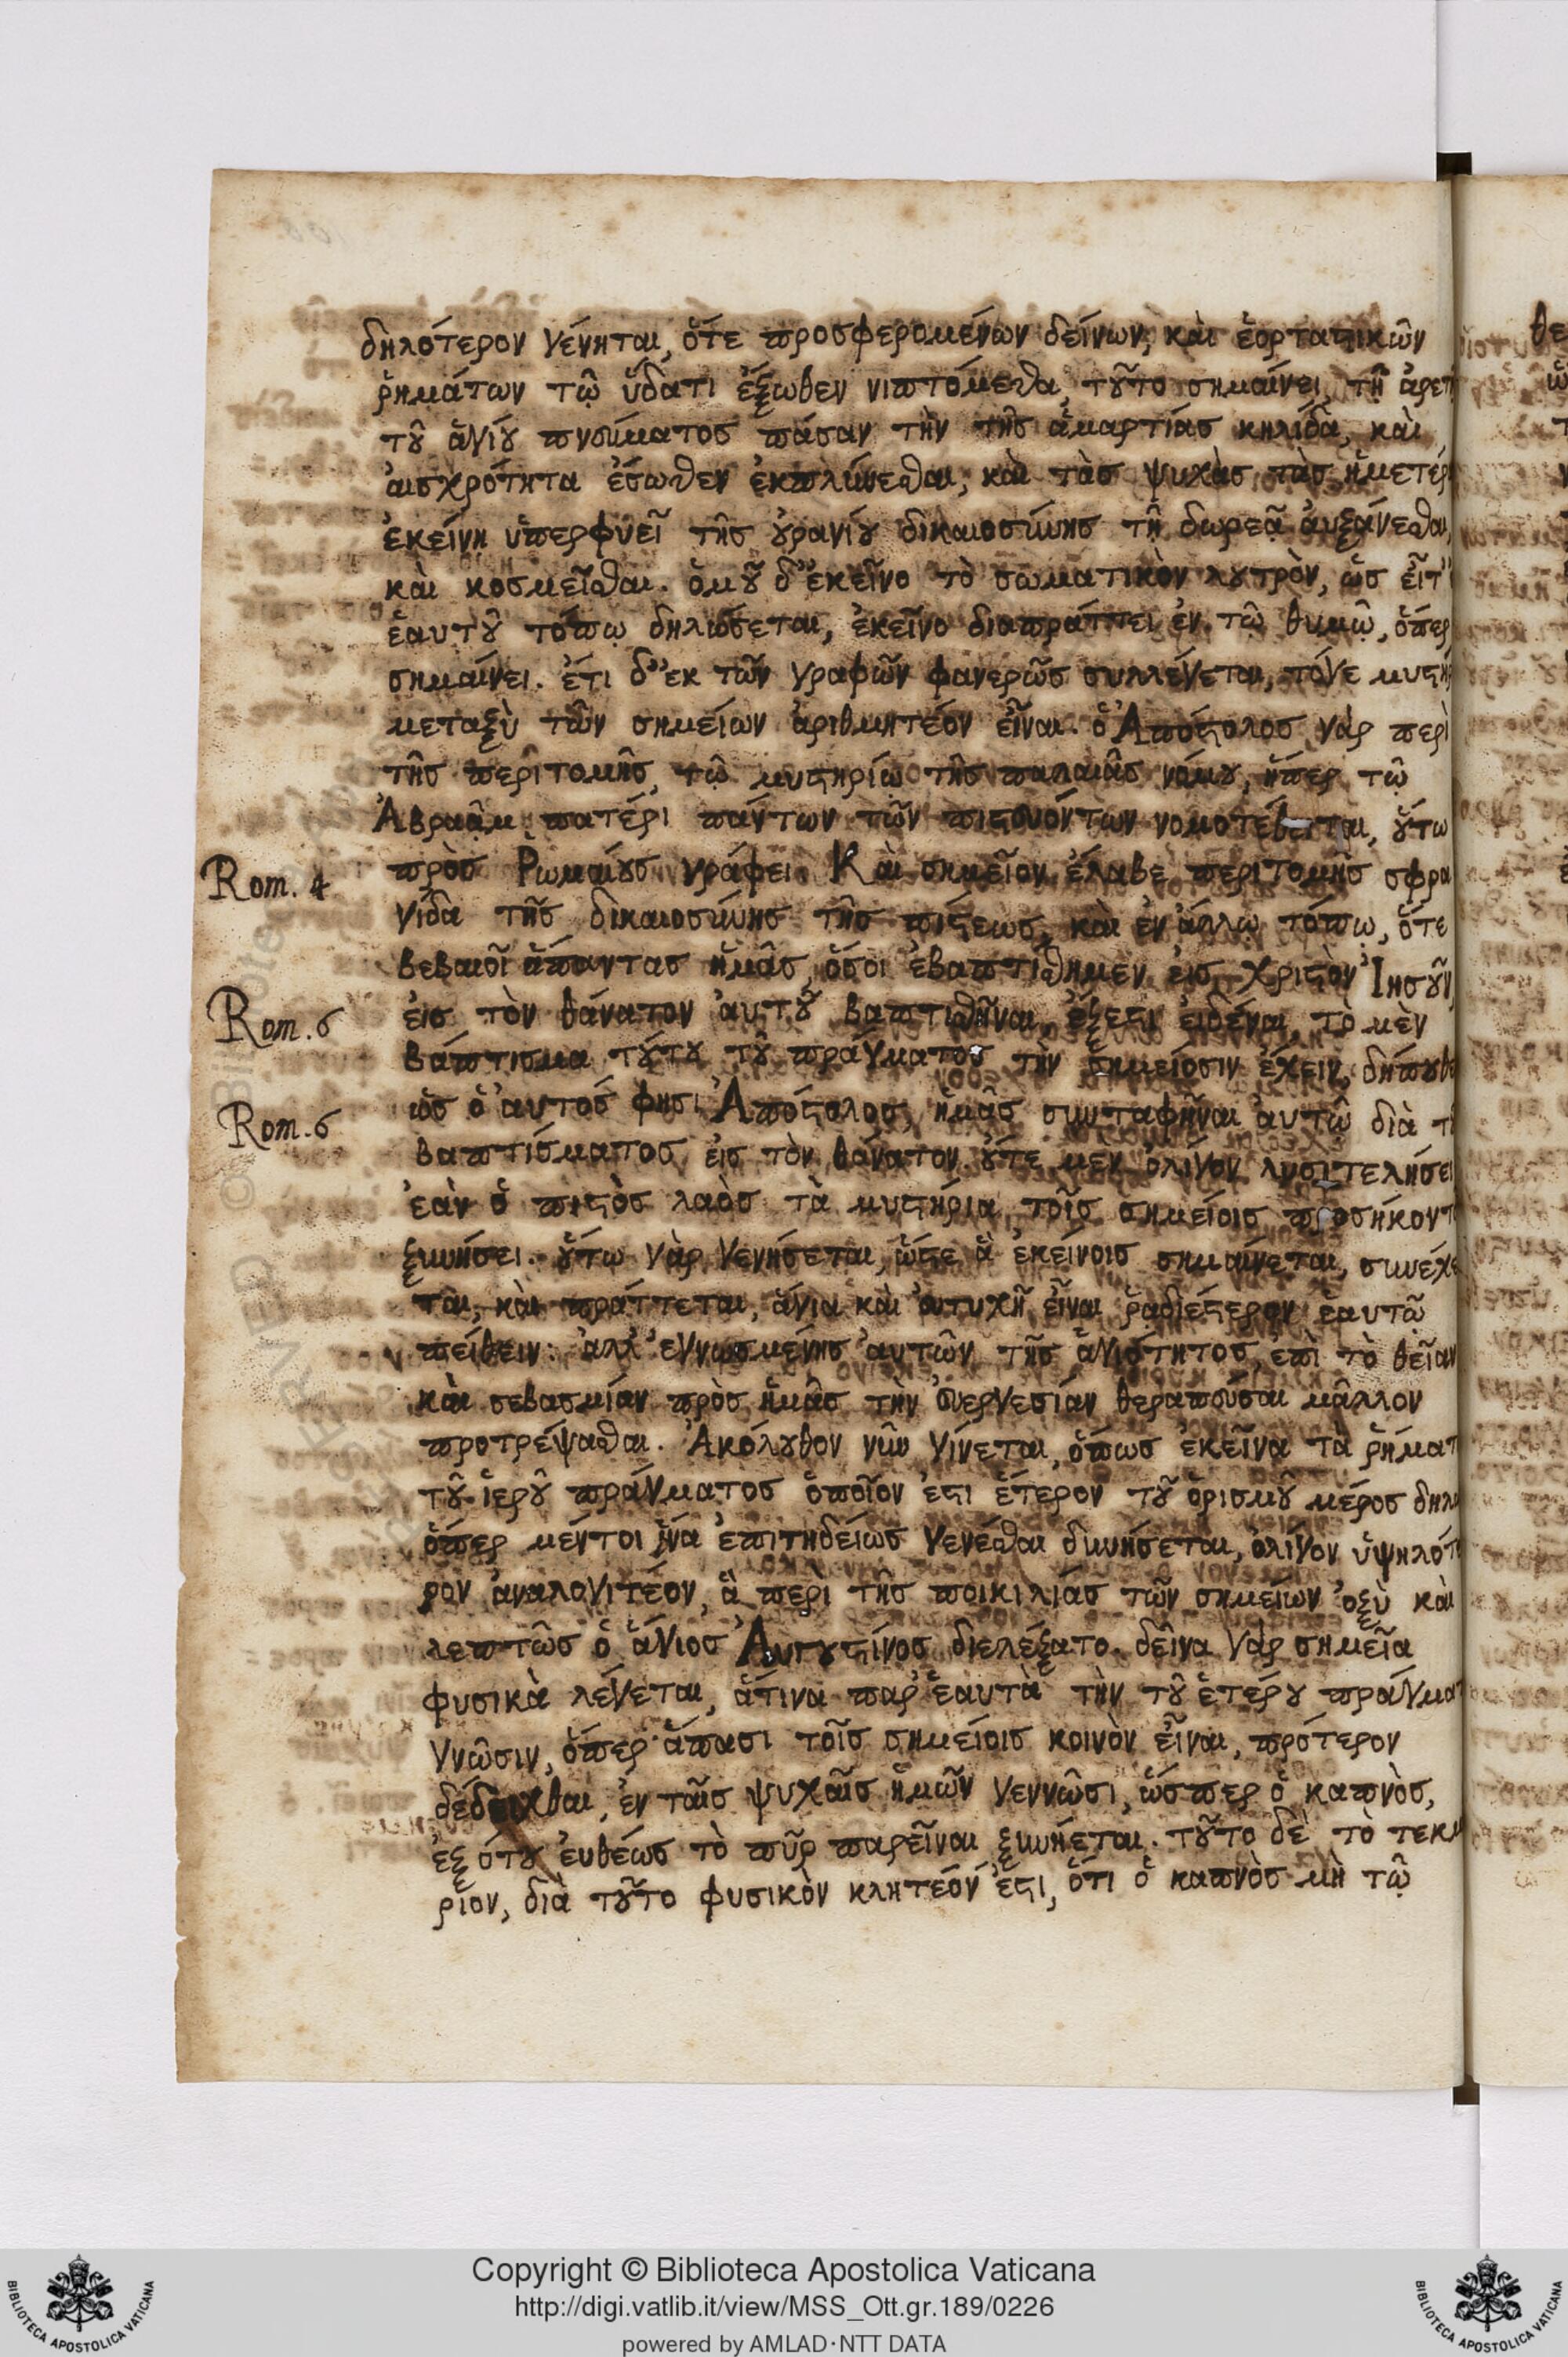 δηλότερον γένηται, ὅτε προσφερομένων δείνων, καὶ ἑορταστικῶν
ῥημάτων τῷ ὕδατι ἔξωθεν νιπτόμεθα, τοῦτο σημαίνει, τῇ ἀρετ
τοῦ ἁγίου πνεύματος πᾶσαν τὴν τῆς ἁμαρτίας κηλίδα, καὶ
αἰσχρότητα ἔσωθεν ἐκπλύνεσθαι, καὶ τὰς ψυχὰς τὰς ἡμετέρ
ἐκείνῃ ὑπερφυεῖ τῆς οὐρανίου δικαιοσύνης τῇ δωρεᾷ αὐξάνεσθαι,
καὶ κοσμεῖσθαι. ὁμοῦ δ' ἐκεῖνο τὸ σωματικὸν λουτρὸν, ὡς εἶτ'
ἑαυτοῦ τόπῳ δηλώσεται, ἐκεῖνο διαπράττει ἐν τῷ θυμῷ, ὅπερ
σημαίνει. ἔτι δ' ἐκ τῶν γραφῶν φανερῶς συλλέγεται, τόγε μυστή
μεταξὺ τῶν σημείων ἀριθμητέον εἶναι. ὁ Ἀπόστολος γὰρ περὶ
τῆς περιτομῆς, τῷ μυστηρίῳ τῆς παλαιᾶς νόμου, ἥπερ τῷ
Ἀβραὰμ πατέρι πάντων τῶν πιστευόντων νομοτέθειται, οὕτω
Rom. 4 πρὸς Ῥωμαίους γράφει. Καὶ σημεῖον ἔλαβε περιτομῆς σφρα
γίδα τῆς δικαιοσύνης τῆς πίστεως, καὶ ἐν ἄλλῳ τόπῳ, ὅτε
βεβαιοῖ ἅπαντας ἡμᾶς, ὅσοι ἐβαπτίσθημεν εἰς Χριστὸν Ἰησοῦν,
Rom. 6 εἰς τὸν θάνατον αὐτοῦ βαπτισθῆναι, ἔξεστι εἰδέναι, τὸ μὲν
βάπτισμα τούτου τοῦ πράγματος τὴν σημείοσιν ἔχειν, δήπουθ
Rom. 6 ὡς ὁ αὐτός φησι Ἀπόστολος, ἡμᾶς συνταφῆναι αὐτῷ διὰ τ
βαπτίσματος εἰς τὸν θάνατον. οὔτε μὲν ὀλίγον λυσιτελήσει
ἐὰν ὁ πιστὸς λαὸς τὰ μυστήρια τοῖς σημείοις προσήκοντ
ξυνήσει. οὕτω γὰρ γενήσεται, ὥστε ἃ ἐκείνοις σημαίνεται, συνέχε
ται, καὶ πράττεται, ἅγια καὶ εὐτυχῆ εἶναι ῥαδιέστερον ἑαυτῷ
πείθειν. ἀλλ' ἐγνωσμένης αὐτῶν τῆς ἁγιότητος, ἐπὶ τὸ θείαν
καὶ σεβασμίαν πρὸς ἡμᾶς τὴν εὐεργεσίαν θεραπεῦσαι μᾶλλον
προτρέψασθαι. Ἀκόλουθον νῦν γίνεται, ὅπως ἐκεῖνα τὰ ῥήματ
τοῦ ἱεροῦ πράγματος ὁποῖον ἐστι ἕτερον τοῦ ὁρισμοῦ μέρος δηλω
ὅπερ μέντοι ἵνα ἐπιτηδείως γενέσθαι δυνήσεται, ὀλίγον ὑψηλότ
ρον ἀναλογιτέον, ἃ περὶ τῆς ποικιλίας τῶν σημείων ὀξὺ καὶ
λεπτῶς ὁ ἅγιος Αὐγουστίνος διελέξατο. δεῖνα γὰρ σημεῖα
φυσικὰ λέγεται, ἅτινα παρ' ἑαυτὰ τὴν τοῦ ἑτέρου πράγματ
γνῶσιν, ὅπερ ἅπασι τοῖς σημείοις κοινὸν εἶναι, πρότερον
δέδειχθαι, ἐν ταῖς ψυχαῖς ἡμῶν γεννῶσι, ὥσπερ ὁ καπνὸς,
ἐξ ὅτου εὐθέως τὸ πῦρ παρεῖναι ξυνήεται. τοῦτο δὲ τὸ τεκμ
ριον, διὰ τοῦτο φυσικὸν κλητέον ἐστι, ὅτι ὁ καπνὸς μὴ τῷ
Copyright © Biblioteca Apostolica Vaticana
http://digi.vatlib.it/view/MSS_Ott.gr.189/0226
powered by AMLAD·NTT DATA
BIBLIOTECA APOSTOLICA VATICANA
BIBLIOTECA APOSTOLICA VATICANA